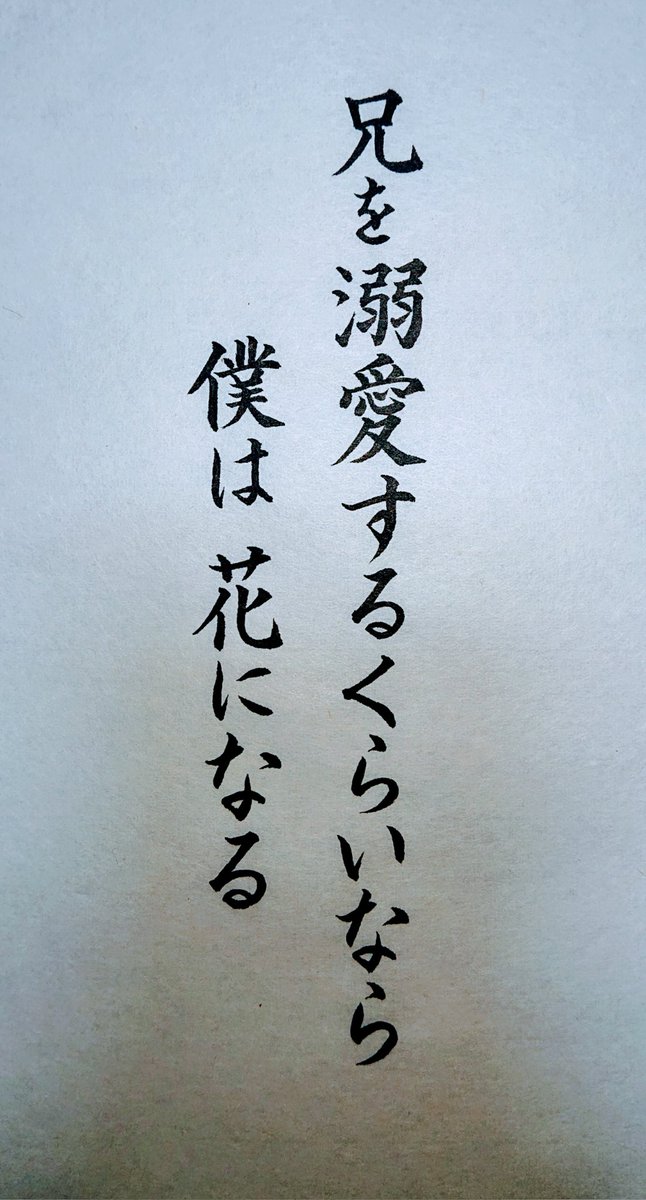 兄を溺愛するくらいなら
僕は花になる